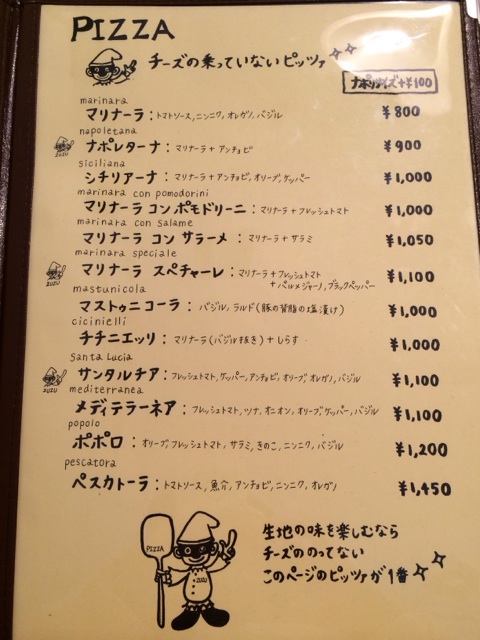 PIZZA
チーズの乗っていないピッツァ
ナポリサイズ+¥100
marinara
マリナーラ：トマトソース,ニンニク,オレガノ,バジル ¥800
napoletana
ZUZU ナポレターナ：マリナーラ+アンチョビ ¥900
siciliana
シチリアーナ：マリナーラ+アンチョビ,オリーブ,ケッパー ¥1,000
marinara con pomodorini
マリナーラ コン ポモドリーニ：マリナーラ+フレッシュトマト ¥1,000
marinara con salame
マリナーラ コン サラーメ：マリナーラ+サラミ ¥1,050
marinara speciale
ZUZU マリナーラ スペチャーレ：マリナーラ+フレッシュトマト ¥1,100
+パルメジャーノ,ブラックペッパー
mastunicola
マストゥニコーラ：バジル,ラルド(豚の背脂の塩漬け) ¥1,000
cicinielli
チチニエッリ：マリナーラ(バジル抜き)+しらす ¥1,000
santa Lucia
ZUZU サンタルチア：フレッシュトマト,ケッパー,アンチョビ,オリーブ,オレガノ,バジル ¥1,100
mediterranea
メディテラーネア：フレッシュトマト,ツナ,オニオン,オリーブ,ケッパー,バジル ¥1,100
popolo
ポポロ：オリーブ,フレッシュトマト,サラミ,きのこ,ニンニク,バジル ¥1,200
pescatora
ペスカトーラ：トマトソース,魚介,アンチョビ,ニンニク,オレガノ ¥1,450
PIZZA
ZUZU
生地の味を楽しむなら
チーズののってない
このページのピッツァが1番